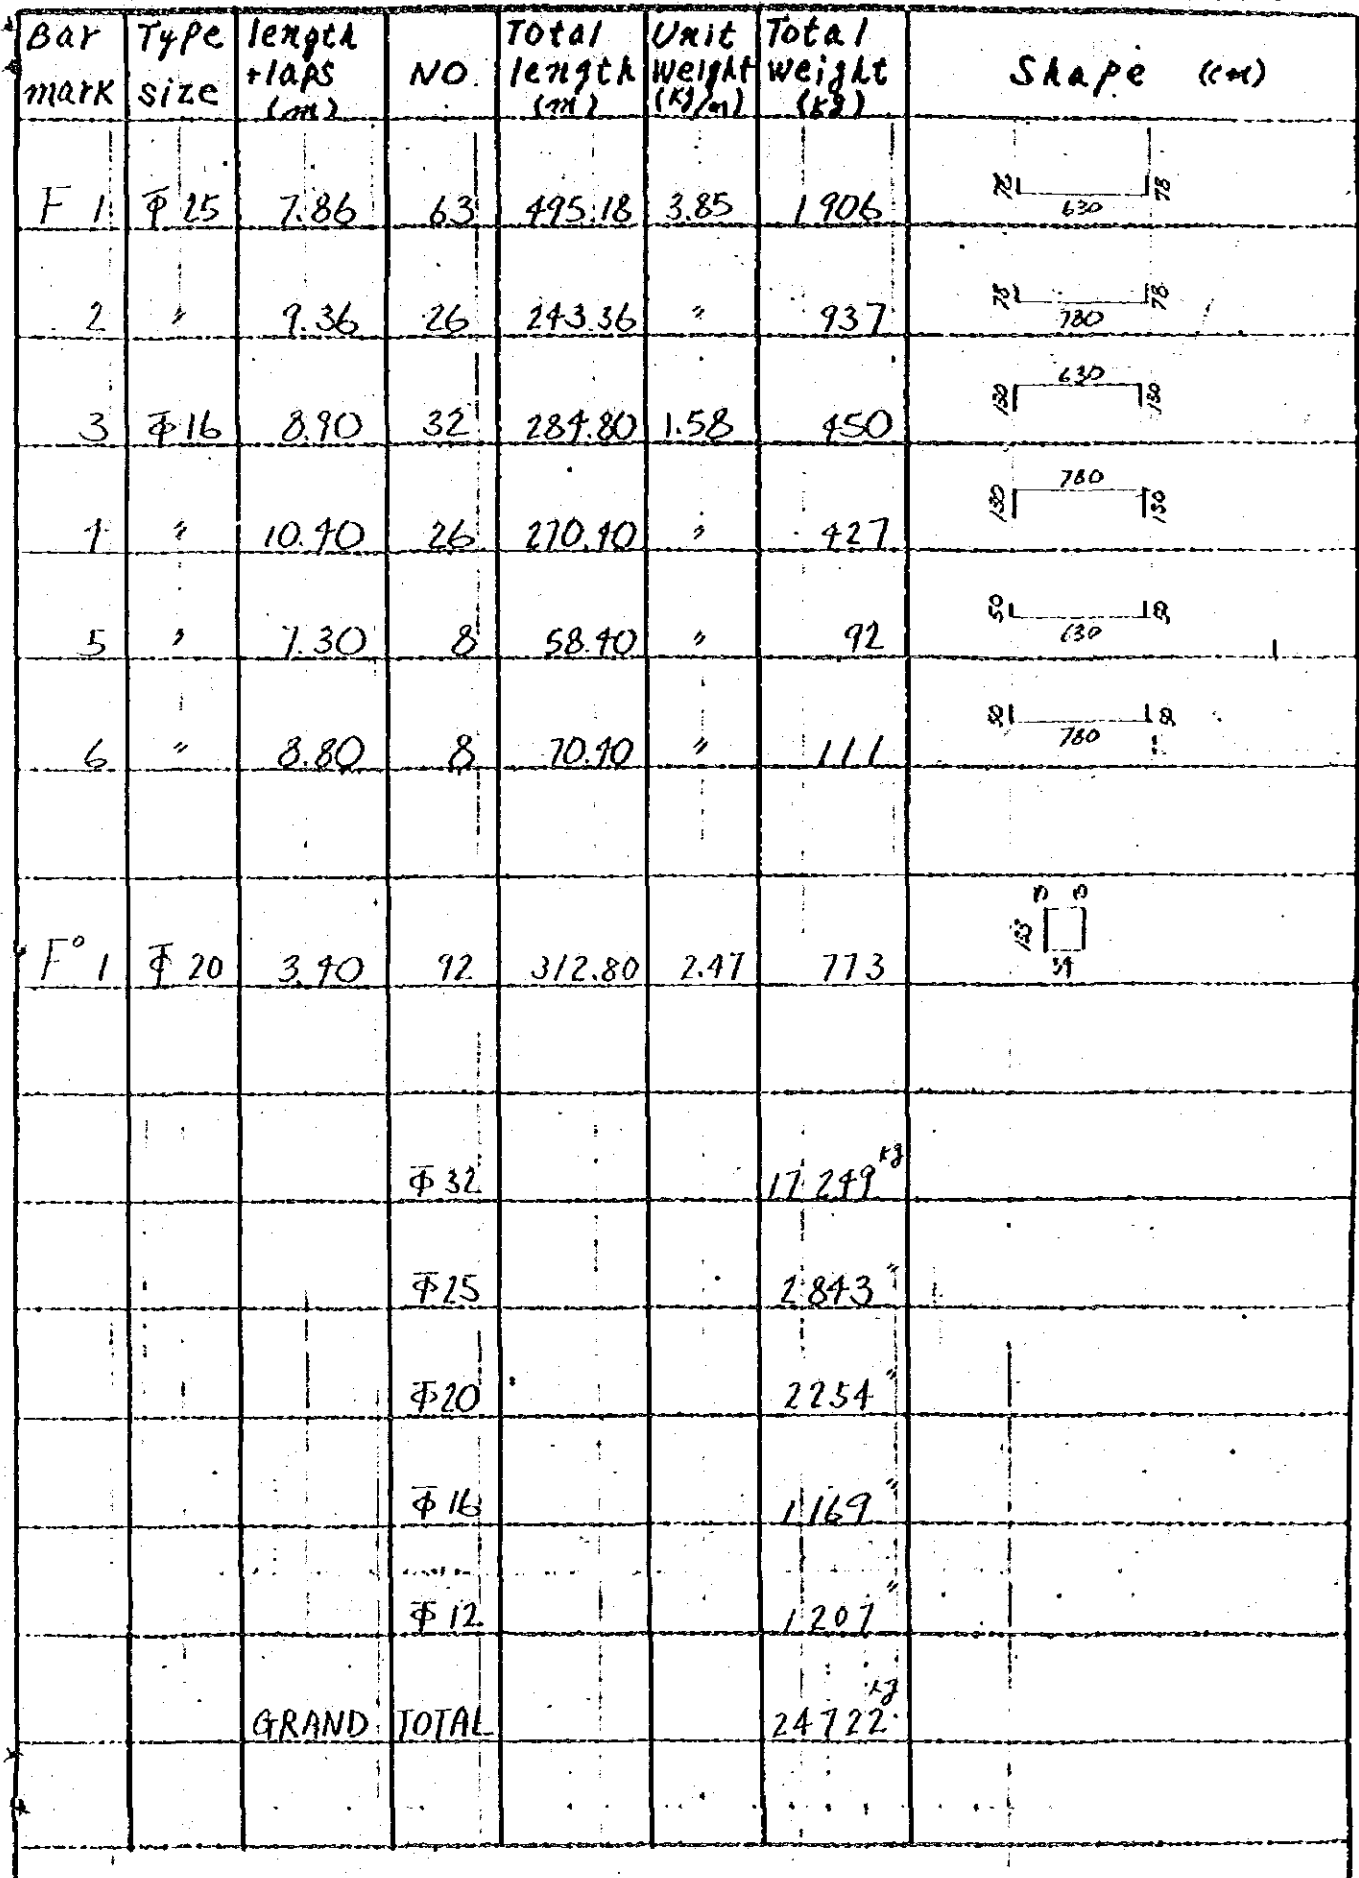 Bar mark Type size length +laps (m) NO. Total length (m) Unit weight (kg/m) Total weight (kg) Shape (cm)
F 1 Φ 25 7.86 63 495.18 3.85 1906 78 630 78
2 〃 9.36 26 243.36 〃 937 78 780 78
3 Φ 16 8.90 32 284.80 1.58 450 130 630 130
4 〃 10.40 26 270.40 〃 427 130 780 130
5 〃 7.30 8 58.40 〃 92 50 630 50
6 〃 8.80 8 70.40 〃 111 50 780 50
F° 1 Φ 20 3.40 92 312.80 2.47 773
Φ 32 17249 kg
Φ 25 2843 〃
Φ 20 2254 〃
Φ 16 1169 〃
Φ 12 1207 〃
GRAND TOTAL 24722 kg